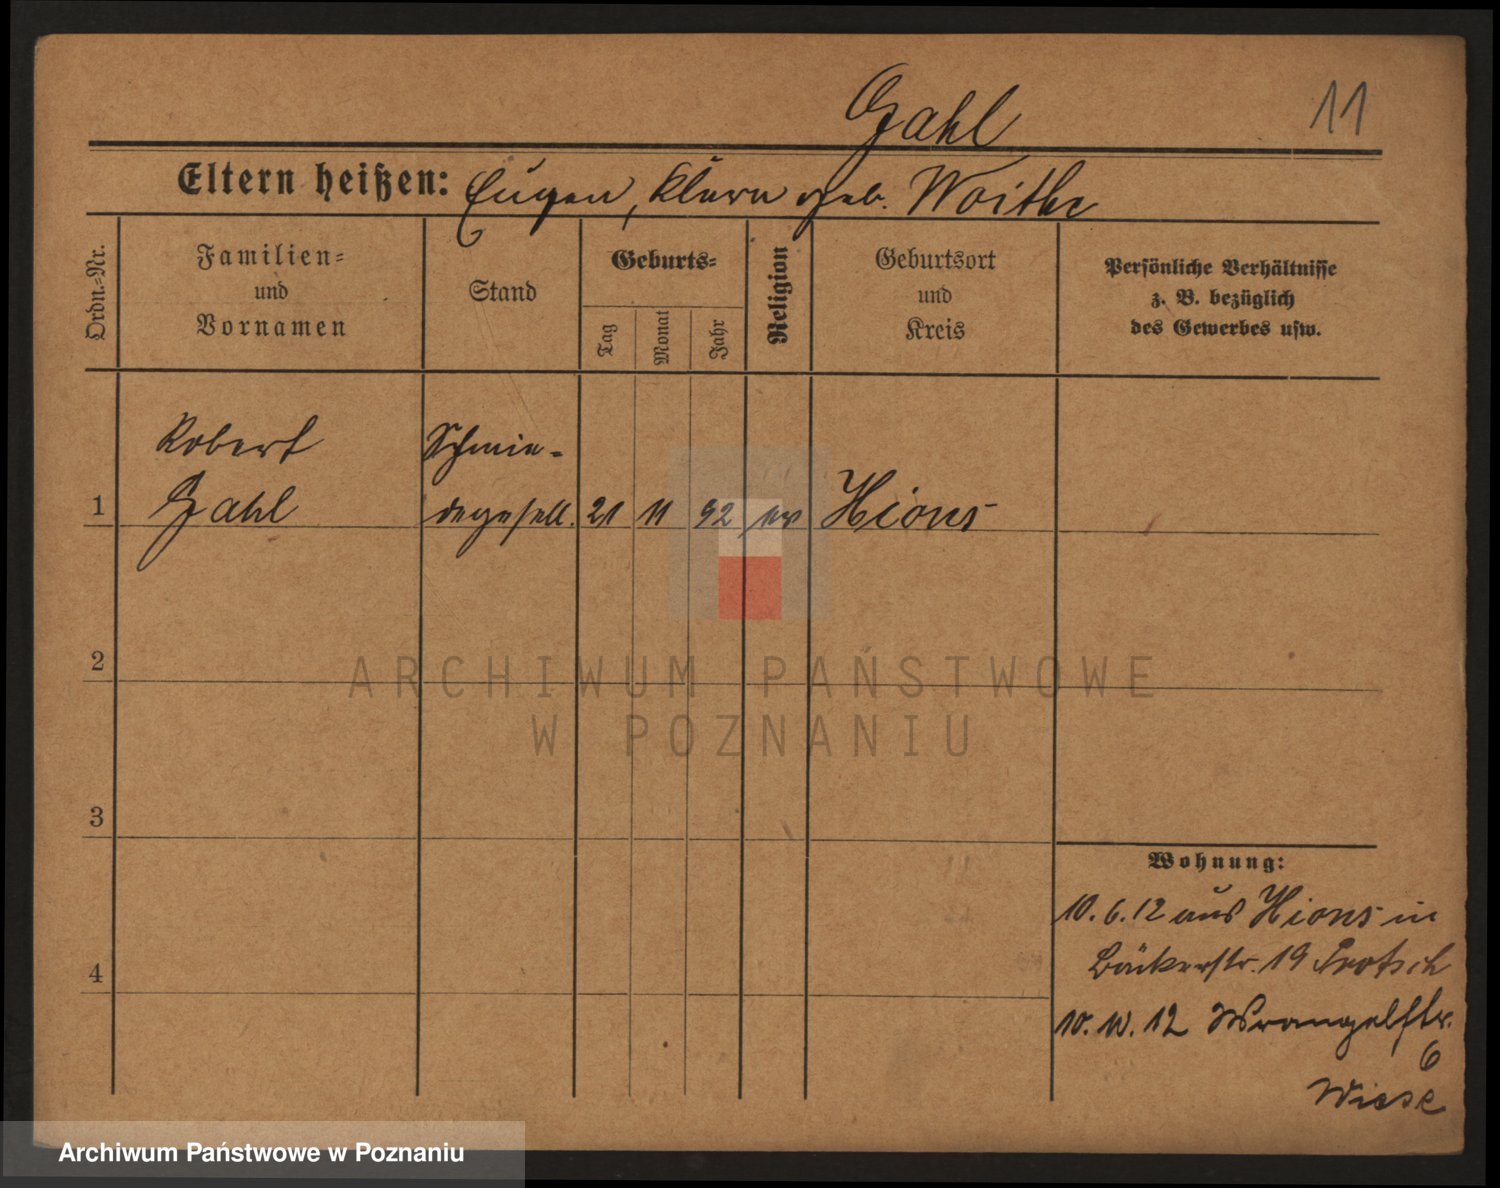 Gahl
11
Eltern heißen: Eugen, Klara geb. Woithe
Ordn.-Nr.
Familien-
und
Vornamen
Stand
Geburts-
Tag
Monat
Jahr
Religion
Geburtsort
und
Kreis
Persönliche Verhältnisse
z. B. bezüglich
des Gewerbes usw.
Robert
Schmie-
1 Gahl degesell. 21 11 92 ev Xions
2
ARCHIWUM PAŃSTWOWE
W POZNANIU
3
Wohnung:
10.6.12 aus Xions in
Bäckerstr. 19 Protsch
4
10.10.12 Wrangelstr.
6
Wiese
Archiwum Państwowe w Poznaniu